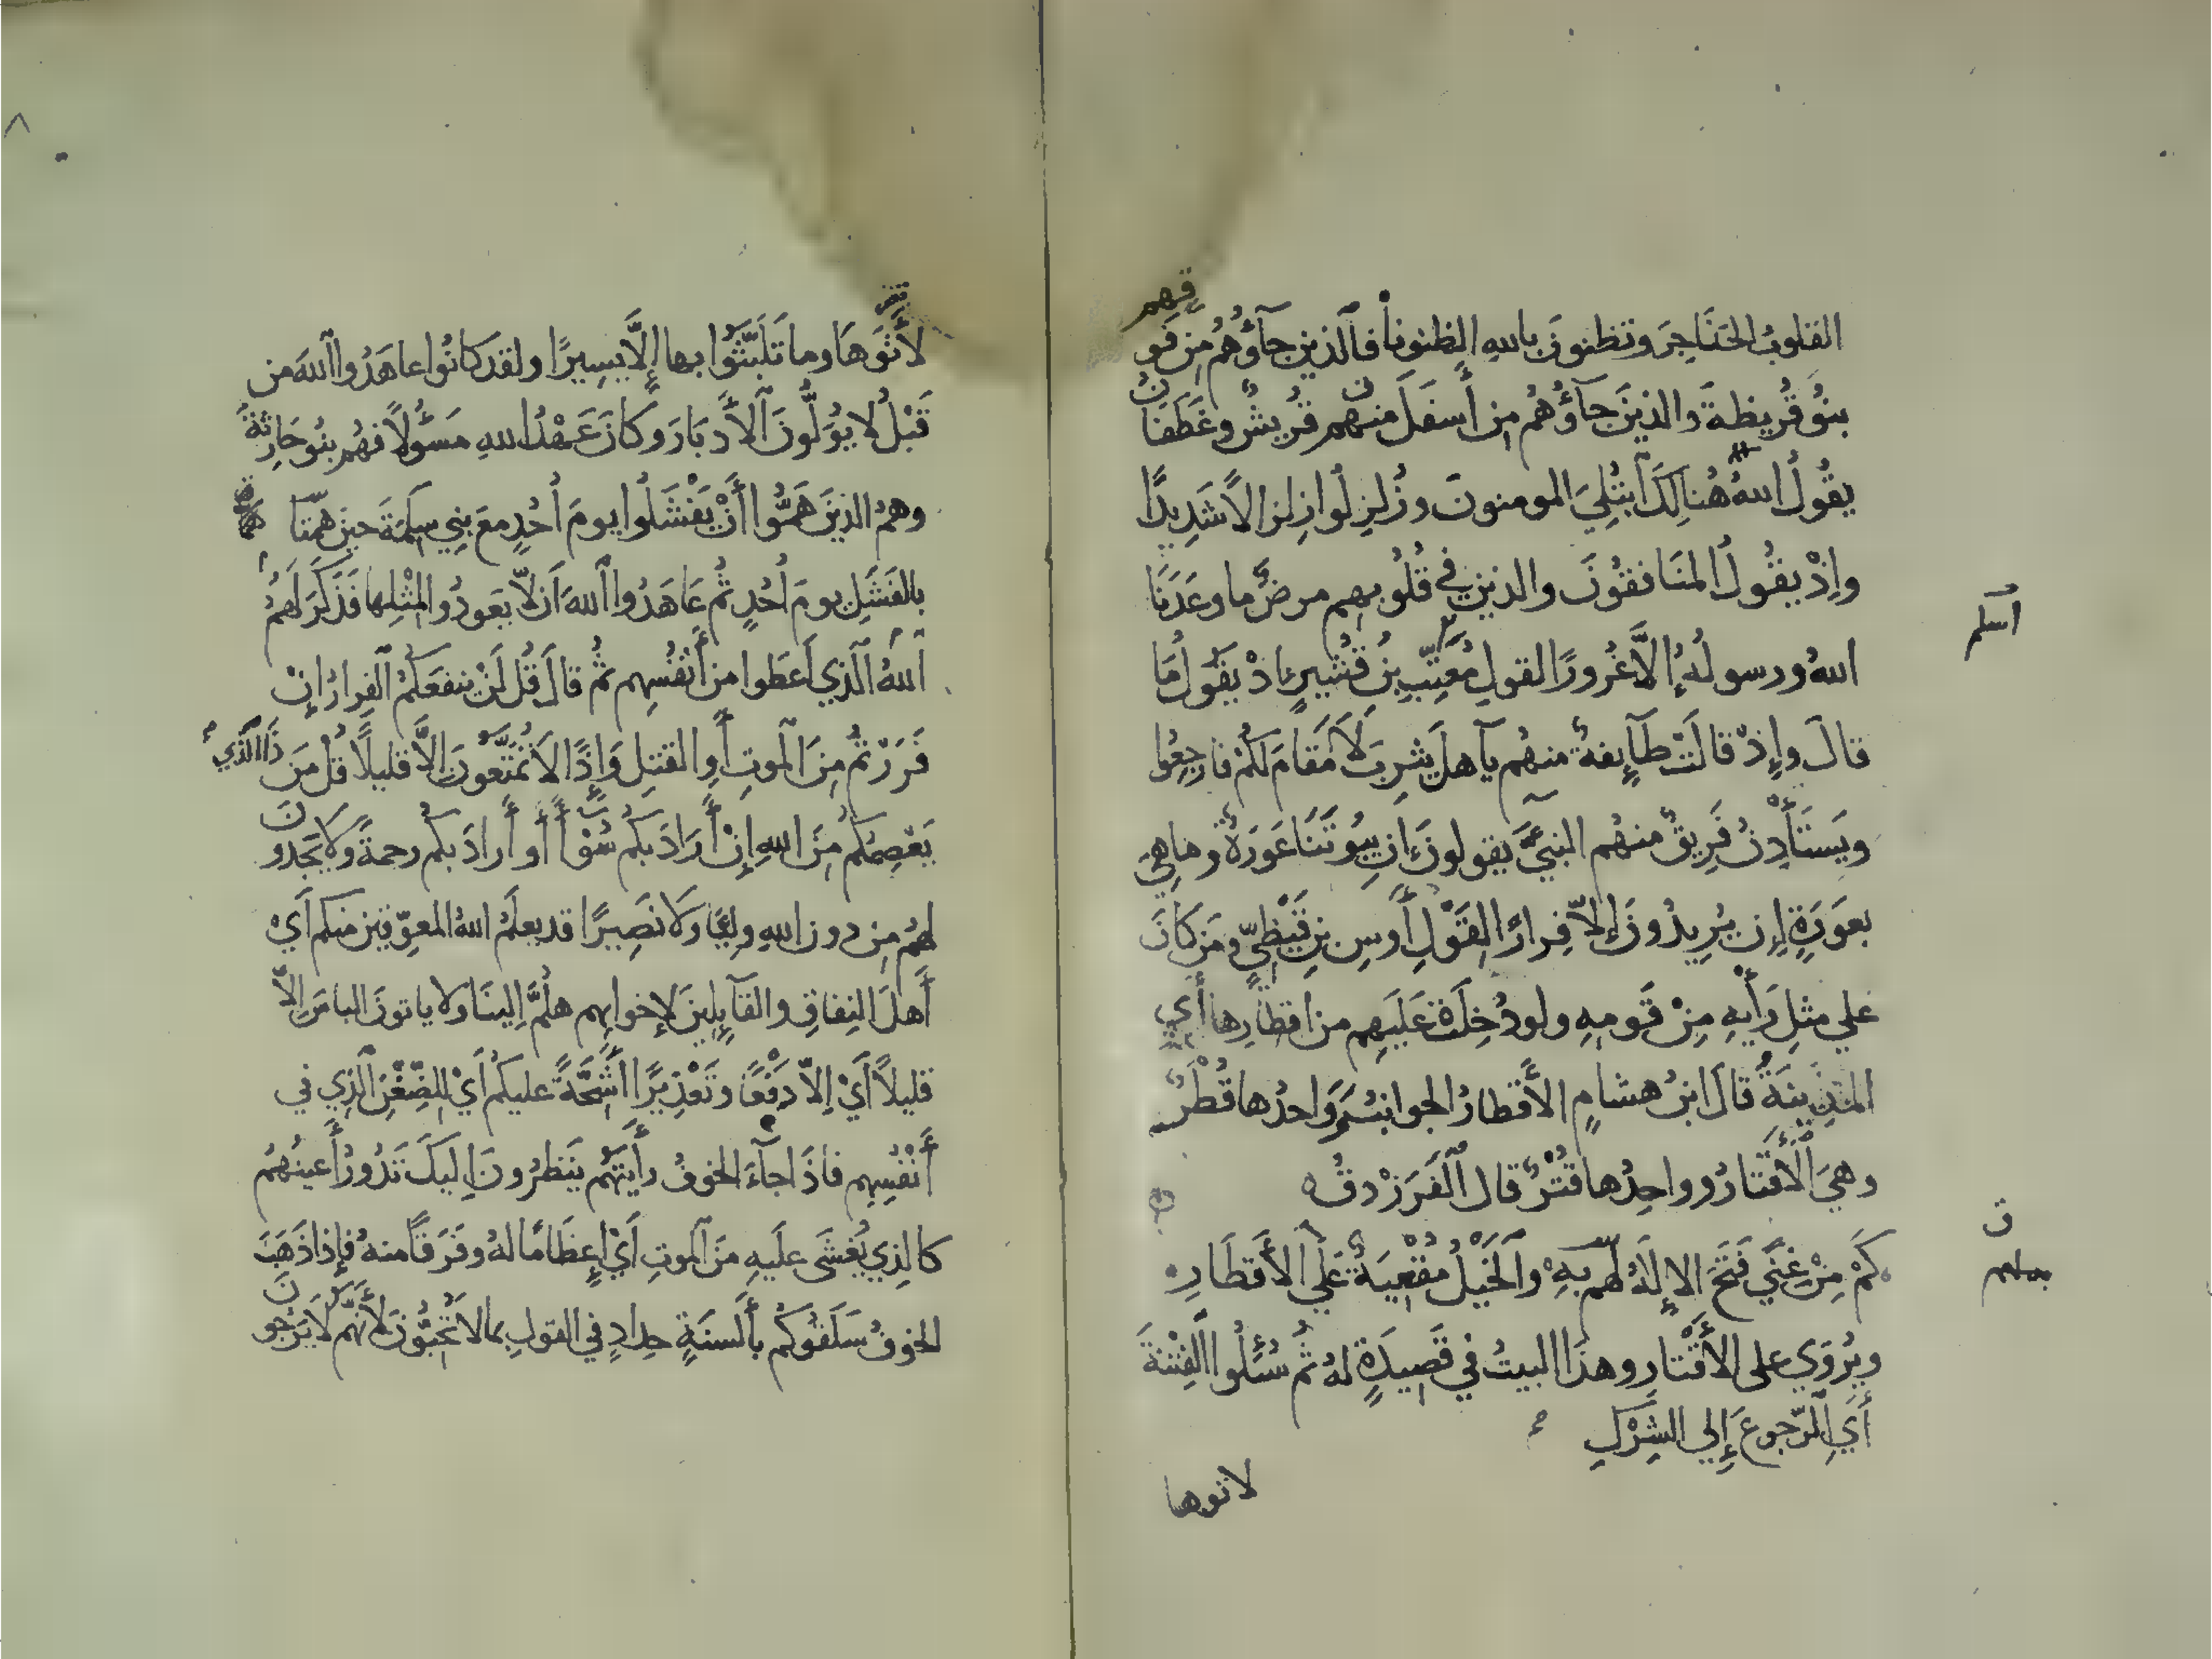 القلوبُ الحَنَاجِرَ وتظنونَ باللهِ الظنونَاْ فالذين جآؤُهُم مِن فوقِهِم
بنُو قُرَيظةَ والذينَ جآؤُهُم مِن أسفلَ منهم قُرَيشٌ وغَطَفَانُ
يقُولُ اللهُ هُنَالِكَ ابتُلِيَ المومنونَ وزُلزِلُوا زِلزالاً شَدِيدًا
وإذْ يقُولُ المنَافقُونَ والذين في قُلُوبِهِم مرضٌ ما وعَدَنَا
اللهُ ورسولُهُ إلَّا غُرورًا لقولِ مُعَتِّبِ بنِ قُشَيرٍ اذْ يَقولُ مَا
قالَ وإذْ قالَتْ طَآئِفةٌ منهُم يآ هلَ يثرِبَ لَا مَقامَ لكُمْ فارجِعُوا
ويَستَأْذِنُ فَرِيقٌ منهُم النبيَّ يقولونَ إنَّ بيُوتَنَا عَورَةٌ وما هِيَ
بعَورَةٍ إن يُرِيدُونَ إلاّ فِرارًا لقَولِ أَوسِ بنِ قَيْظِيٍّ ومَن كانَ
علي مثلِ رَأْيهِ مِنْ قَومِهِ ولو دُخِلَتْ عَلَيهِم من اقطارِها أَي
المدينَةُ قالَ ابنُ هشامٍ الأَقطارُ الجوانبُ وَاحدُها قُطْرٌ
وهيَ الأَقْتارُ وواحِدُها قُتْرٌ قال الفَرَزْدقُ
كَمْ مِنْ غِنًى فَتَحَ الإلَهُ لَهم بِهِ والخَيلُ مُقْعِيَةٌ عَلَي الأَقطَارِ
ويُروَي على الأَقْتارِ وهذَا البيتُ في قَصِيدَةٍ لهُ ثمَّ سُئِلُوا الفِتْنَةَ
أَيِ الرّجوعَ إلي الشِّرْكِ
لاتوها
لأَتَوهَا وما تَلَبَّثُوا بها إلَّا يَسِيرًا ولقد كانُوا عاهَدُوا اللهَ من
قَبْلُ لا يوَلُّونَ الأَدبَارَ وكانَ عَهْدُ اللهِ مَسؤُلاً فهُم بنُو حَارِثةَ
وهمُ الذينَ هَمُّوا أَنْ يَفْشَلُوا يومَ أُحُدٍ معَ بنِي سَلِمَةَ حينَ همَّتا
بالفَشَلِ يومَ أُحُدٍ ثُمَّ عَاهَدُوا اللهَ أن لاّ يعودُوا لمِثْلِها فَذَكَرَ لَهُمُ
اللهُ الَّذي أَعطَوا من أَنفُسِهم ثُمَّ قالَ قُل لَنْ ينفعَكُمُ الفِرارُ إنْ
فَرَرْتُم مِنَ الموتِ أَوِ القتلِ وَإذًا لَا تُمَتَّعُونَ إلَّا قليلاً قُل مَن ذَا الَّذي
يَعْصِمُكُم مِنَ اللهِ إنْ أَرَادَ بكُم سُوْأً أَو أَرادَ بكُم رحمةً ولَا يَجِدُونَ
لهُم مِن دون اللهِ وليًّا ولَا نَصِيرًا قد يعلمُ اللهُ المعوّقينَ منكم أَيْ
أَهلَ النِفاقِ والقآئِلِينَ لإخوانِهِم هلُمَّ إلينَا ولا ياتونَ الباسَ إلاّ
قليلاً أَيْ إلاّ دَفْعًا وتَعْذِيرًا أَشِحَّةً عليكُم أَيْ للضِّغْنِ الَّذِي في
أَنْفُسِهِم فاذَا جآءَ الخوفُ رأَيتَهُم يَنظرُونَ إليكَ تَدُورُ أَعينُهُم
كالذِي يُغشَى عليهِ مِنَ الموتِ أَيْ إعظَامًا لهُ وفَرَقًا منهُ فإذا ذَهَبَ
الخوفُ سَلَقُوكُم بأَلسنَةٍ حِدادٍ في القولِ بما لا تُحِبُّونَ لأَنَّهُم لَا يَرْجُونَ